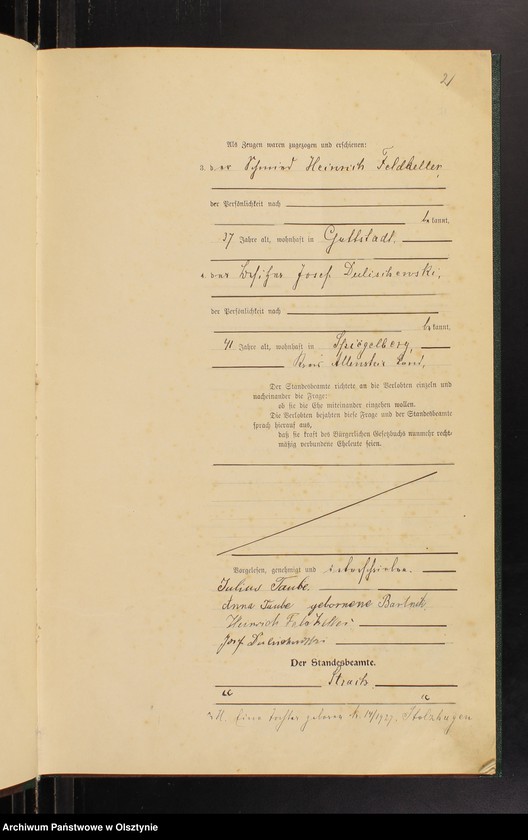 21
Als Zeugen waren zugezogen und erschienen:
3. der Schmied Heinrich Feldkeller,
der Persönlichkeit nach
bekannt,
37 Jahre alt, wohnhaft in Guttstadt.
4. der Besitzer Josef Dulischewski,
der Persönlichkeit nach
bekannt,
41 Jahre alt, wohnhaft in Spiegelberg,
Kreis Allenstein Land.
Der Standesbeamte richtete an die Verlobten einzeln und
nacheinander die Frage:
ob sie die Ehe miteinander eingehen wollen.
Die Verlobten bejahten diese Frage und der Standesbeamte
sprach hierauf aus,
daß sie kraft des Bürgerlichen Gesetzbuchs nunmehr recht-
mäßig verbundene Eheleute seien.
Vorgelesen, genehmigt und unterschrieben.
Julius Taube.
Anna Taube geborene Bartnik
Heinrich Feldkeller
Josef Dulischewski
Der Standesbeamte.
Eine Tochter geboren N. 14/1927. Stolzhagen
Archiwum Państwowe w Olsztynie